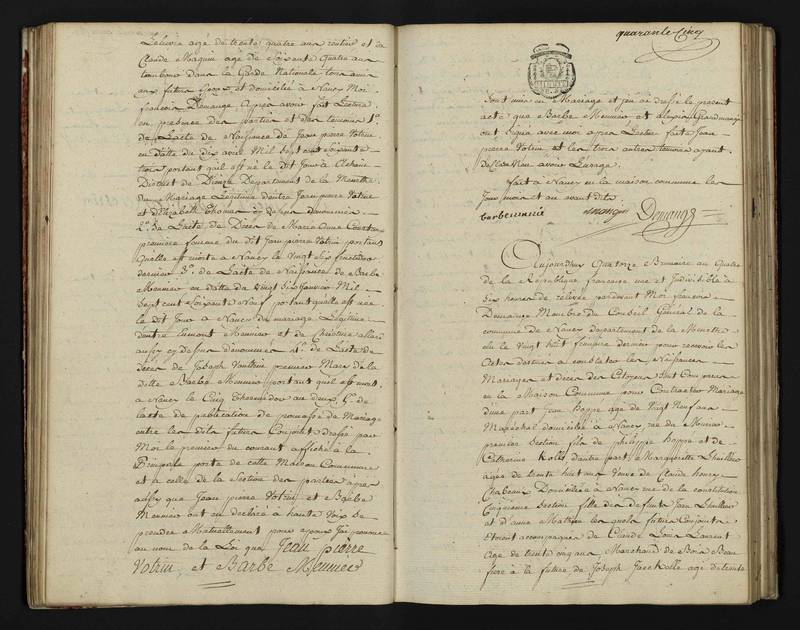 agé de trente quatre ans rentier et de
Claude Magnin agé de Soixante Quatre ans
tambour dans la Garde Nationale tous amis
aux futurs Epoux et domiciliés à Nancy Moi
françois Demange après avoir fait Lecture
en presence des parties et des temoins 1°.
de L'acte de Naissance de Jean pierre Votrin
en datte du dix aout Mil Sept cent Soixante
trois portant qu'il est né le dit Jour à
District de Dieuze Departement de la Meurthe
du Mariage Legitime d'entre Jean pierre Votrin
et d'Elizabeth Thomas cy dessus denommés
2°. de L'acte de Deces de Marie Anne
premiere femme du dit Jean pierre Votrin portant
Quelle est morte a Nancy le vingt Six fructidor
dernier 3°. de L'acte de Naissance de Barbe
Meunier en datte du vingt Six Janvier Mil
Sept cent Soixante Neuf portant quelle est née
le dit Jour a Nancy du mariage Legitime
dentre Meunier et de Christine allard
aussy cy dessus denommés 4°. de L'acte de
deces de Joseph premier Mary de la
ditte Barbe Meunier portant quil est mort
a Nancy le Cinq Thermidor an deux 5°. de
lacte de publication de promesse de Mariage
entre les dits futurs Conjoints dressé par
Moi le premier du courant affiché a la
Principale porte de cette Maison Commune
et a celle de la Section des parties apres
aussy que Jean pierre Votrin et Barbe
Meunier ont eu declaré a haute voix Se
prendre Mutuellement pour epoux J'ai prononcé
au nom de la Loi que Jean pierre
Votrin et Barbe Meunier
quarante-Cinq
Sont unis en Mariage et j'en ai dressé le present
acte que Barbe Meunier et
ont Signé avec moi apres Lecture faite Jean
pierre Votrin et les trois autres temoins ayant
declaré Nen avoir L'usage
fait à Nancy en la maison commune les
Jour mois et an avant dits
barbe meunie Demange
Aujourdhuy Quatorze Brumaire an Quatre
de la République francaise une et Indivisible à
Six heures de relevée pardevant Moi françois
Demange Membre du Conseil Général de la
commune de Nancy departement de la Meurthe
elu le Vingt huit frimaire dernier pour recevoir les
Actes destinés a constater les Naissances
Mariages et deces des Citoyens Sont Comparus
en la Maison Commune pour Contracter Mariage
dune part Jean hoppe agé de Vingt Neuf ans
Marechal domicilié à Nancy rue du
premiere Section fils de philippe hoppe et de
Catherine Kolb dautre part Marguerite Lhuillier
agée de trente huit ans Veuve de Claude henry
Chateaux Domiciliée à Nancy rue de la constitution
Cinquieme Section fille des defunts Jean Lhuillier
et d'anne Mathieu les quels futurs Conjoints
etoient accompagnés de Claude Louis Laurent
Agé de trente cinq ans Marchand de Bois Beau
frere à la future de Joseph agé de trente